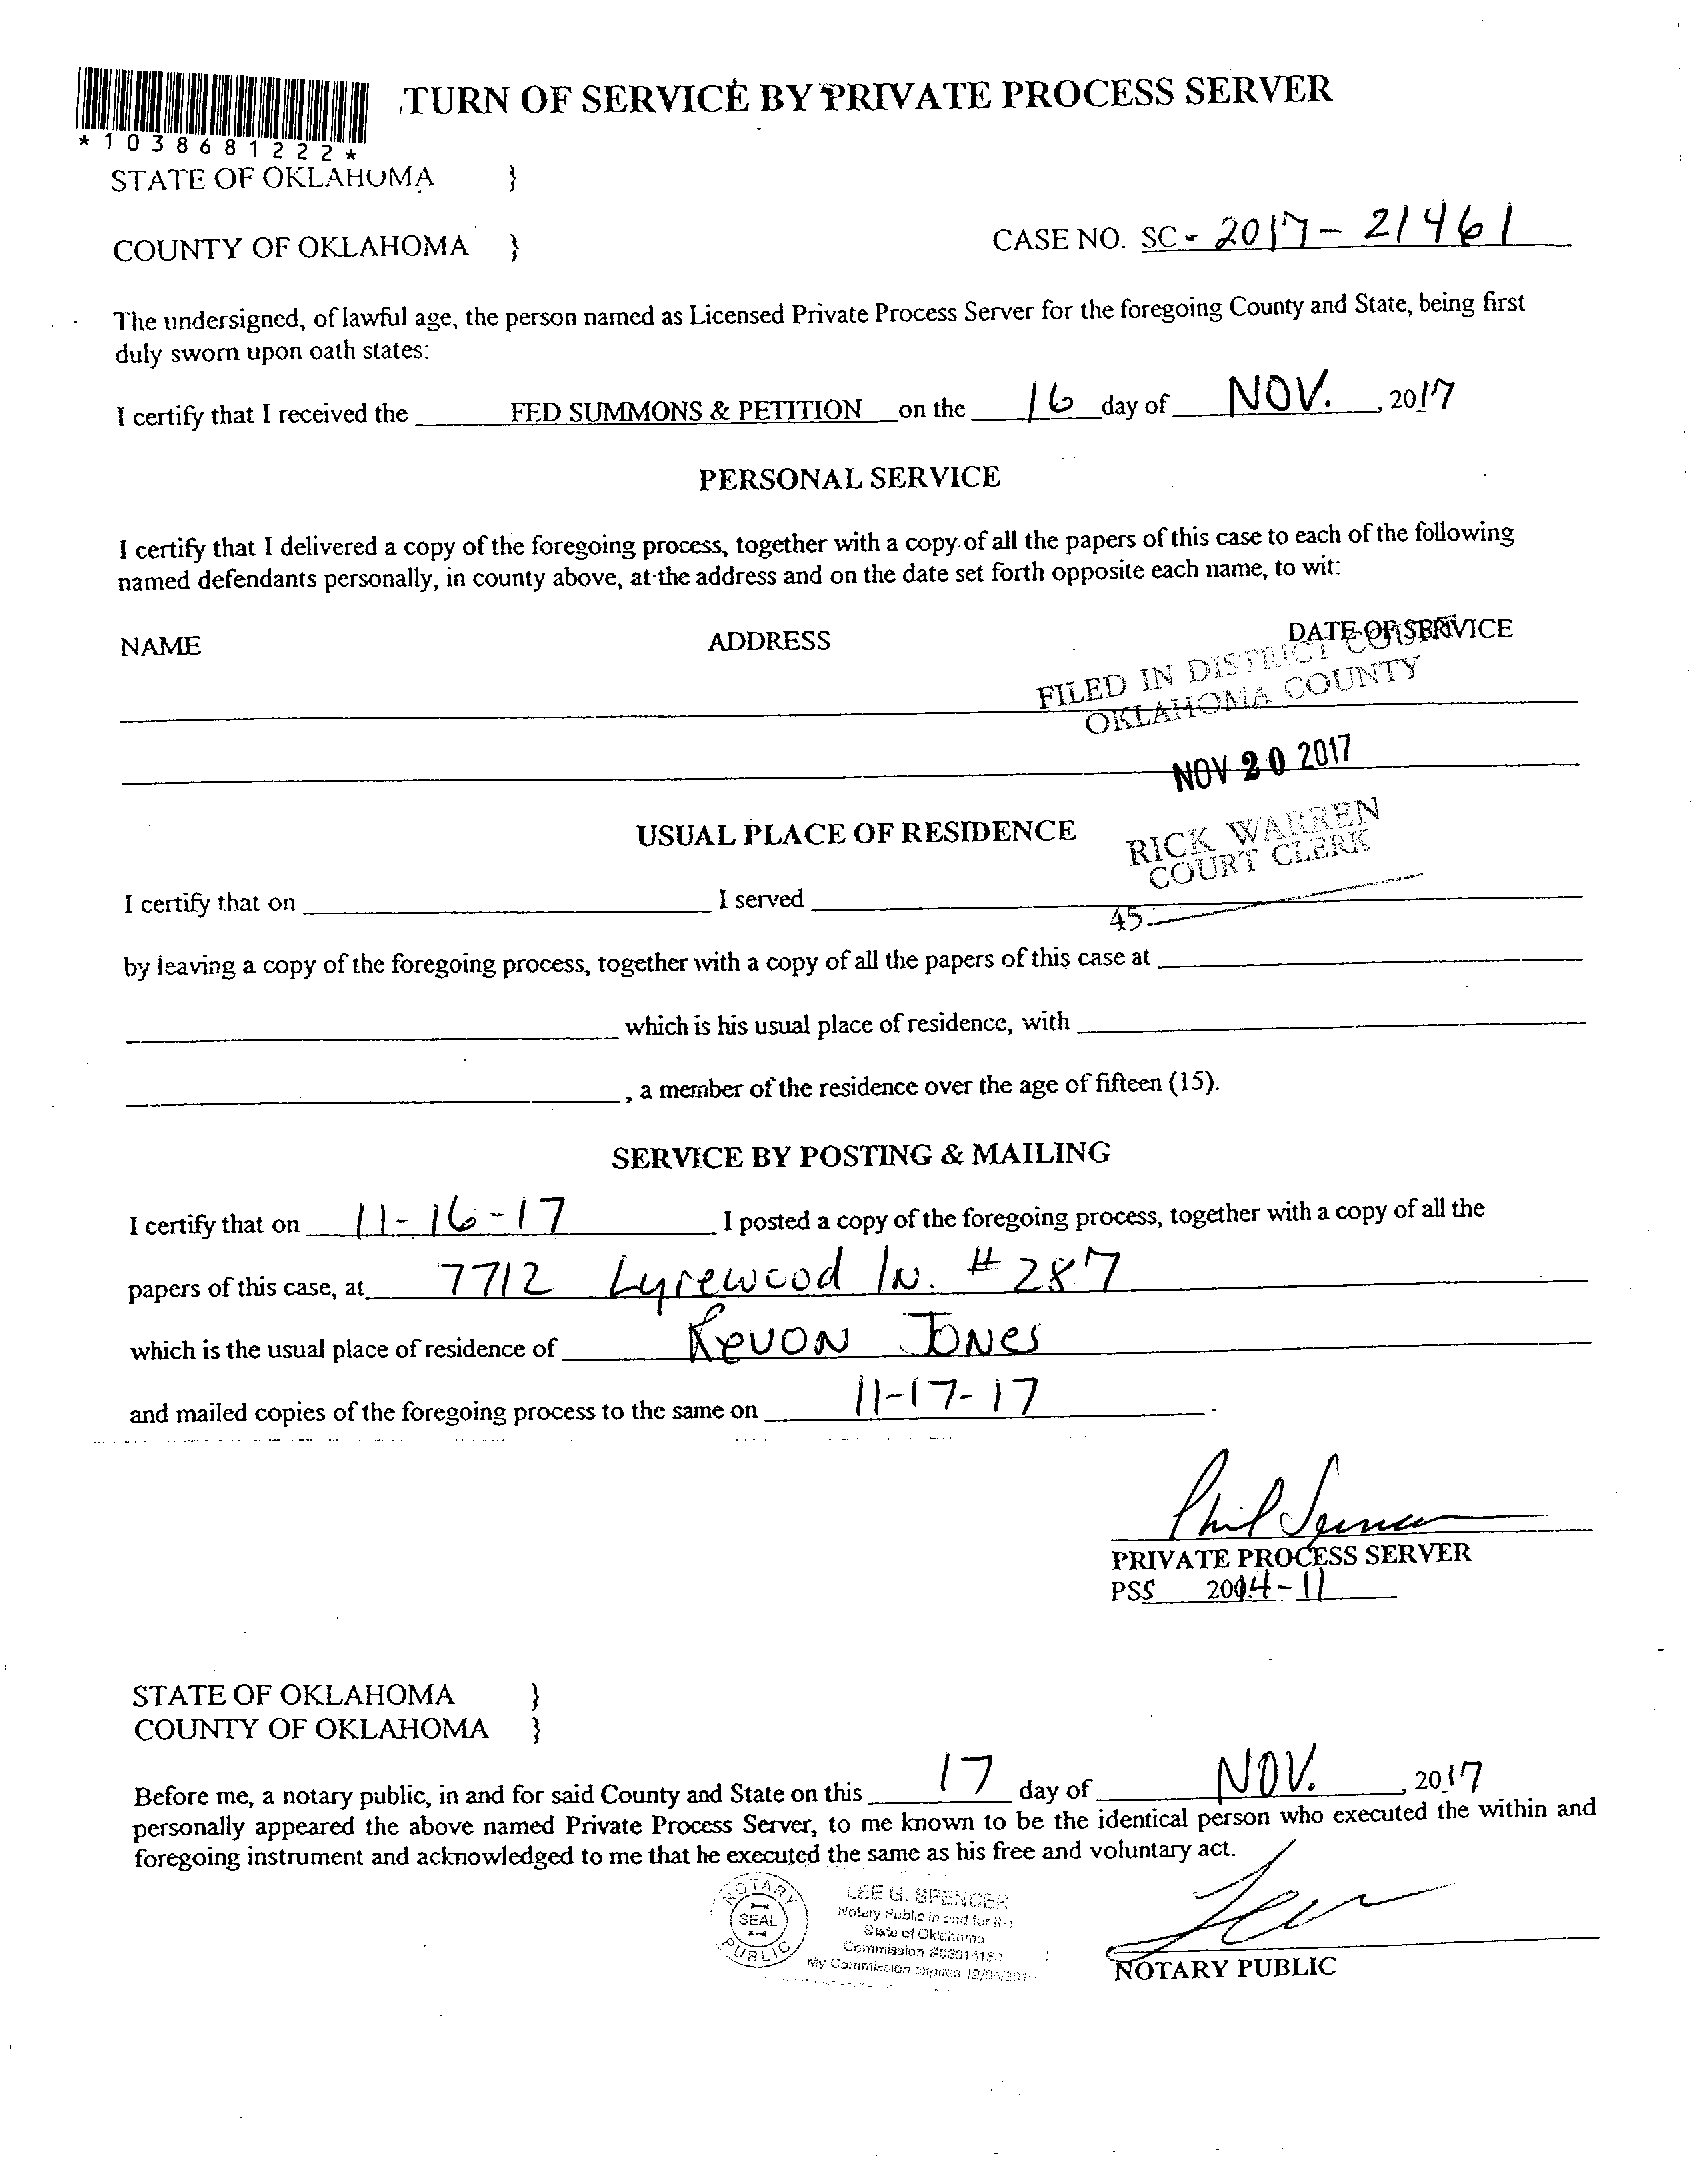 TURN OF SERVICE BY PRIVATE PROCESS SERVER
*1038681222*
STATE OF OKLAHOMA }
COUNTY OF OKLAHOMA } CASE NO. SC - 2017 - 21461
The undersigned, of lawful age, the person named as Licensed Private Process Server for the foregoing County and State, being first
duly sworn upon oath states:
I certify that I received the FED SUMMONS & PETITION on the 16 day of NOV. , 2017
PERSONAL SERVICE
I certify that I delivered a copy of the foregoing process, together with a copy of all the papers of this case to each of the following
named defendants personally, in county above, at the address and on the date set forth opposite each name, to wit:
NAME ADDRESS DATE OF SERVICE
FILED IN DISTRICT COURT
OKLAHOMA COUNTY
NOV 20 2017
USUAL PLACE OF RESIDENCE
RICK WARREN
COURT CLERK
I certify that on I served
45
by leaving a copy of the foregoing process, together with a copy of all the papers of this case at
which is his usual place of residence, with
, a member of the residence over the age of fifteen (15).
SERVICE BY POSTING & MAILING
I certify that on 11-16-17 I posted a copy of the foregoing process, together with a copy of all the
papers of this case, at 7712 Lyrewood ln. # 287
which is the usual place of residence of Kevon Jones
and mailed copies of the foregoing process to the same on 11-17-17 .
Phil Spencer
PRIVATE PROCESS SERVER
PSS 2004-11
STATE OF OKLAHOMA }
COUNTY OF OKLAHOMA }
Before me, a notary public, in and for said County and State on this 17 day of NOV. , 2017
personally appeared the above named Private Process Server, to me known to be the identical person who executed the within and
foregoing instrument and acknowledged to me that he executed the same as his free and voluntary act.
NOTARY
SEAL
PUBLIC
LEE G. SPENCER
Notary Public in and for
State of Oklahoma
Commission
My Commission expires
NOTARY PUBLIC